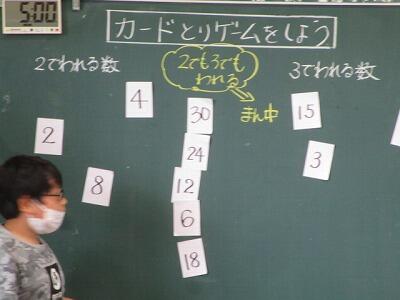 5:00
カードとりゲームをしよう
2でわれる数
2でも3でも
われる
まん中
3でわれる数
2
4
8
30
24
12
6
18
15
3